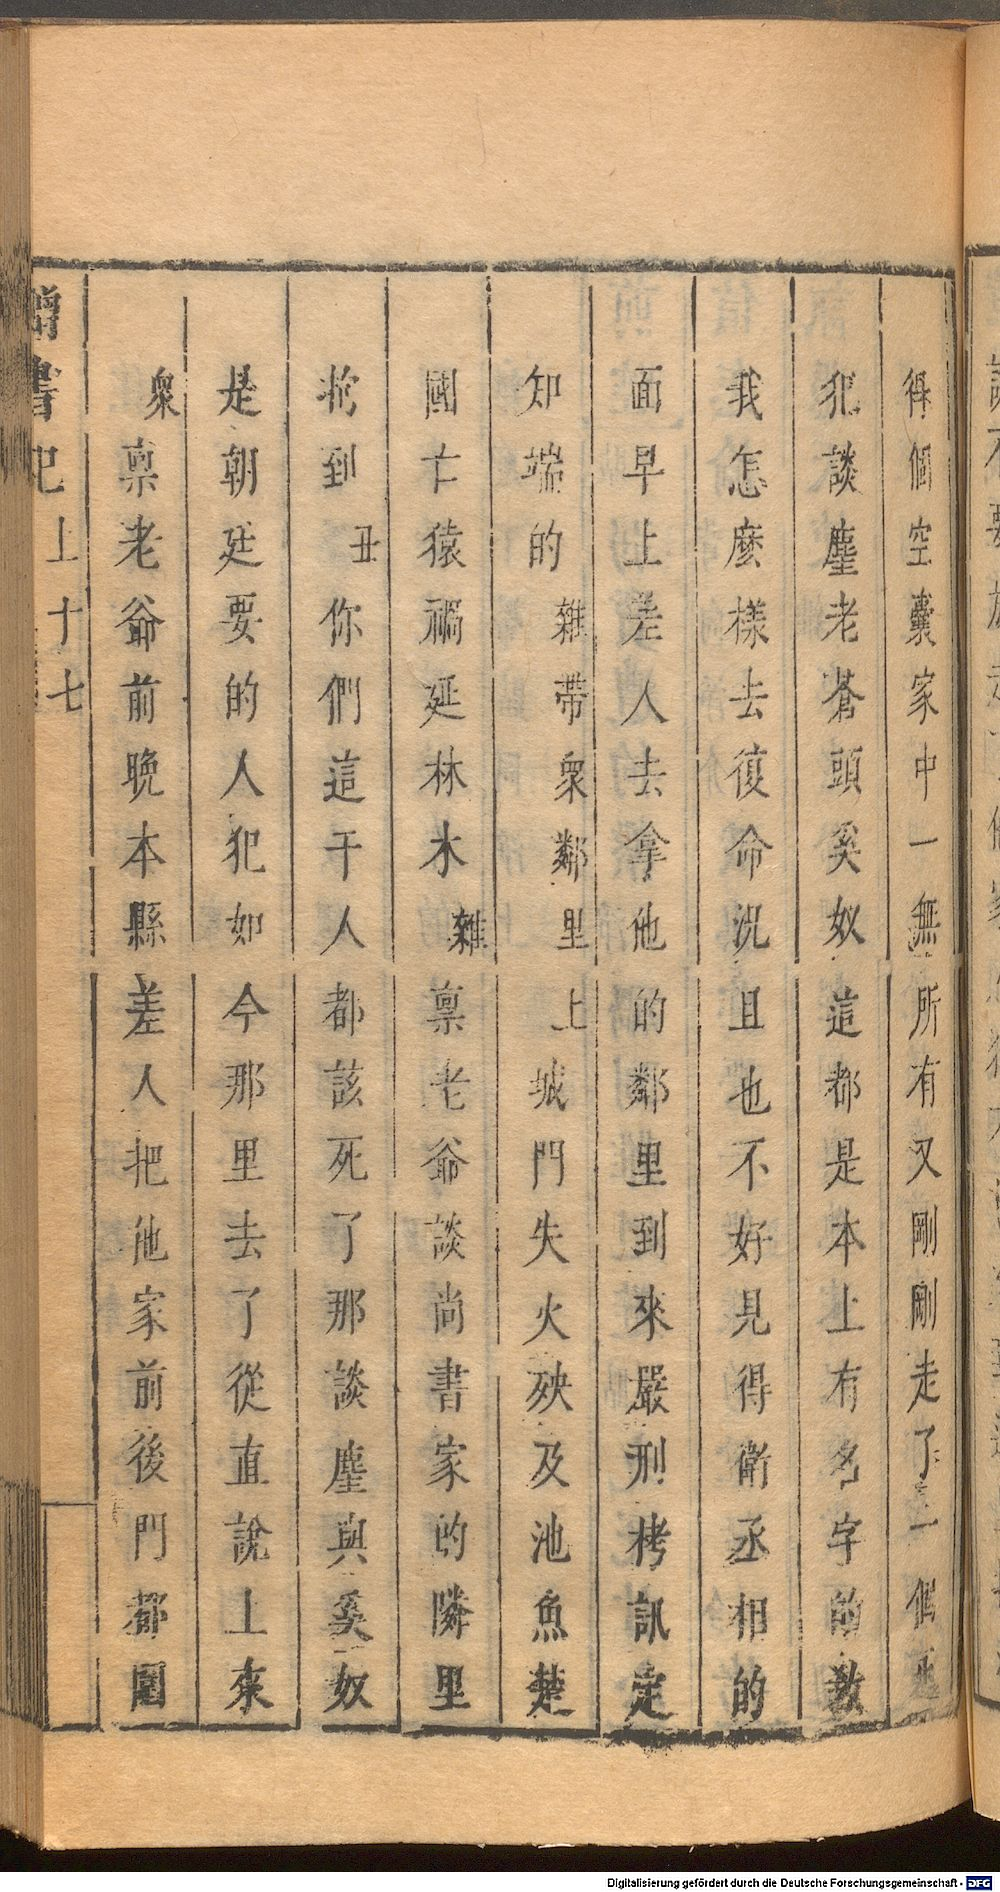 得個空囊家中一無所有又剛剛走了一個逃
犯談塵老蒼頭奚奴這都是本上有名字的教
我怎麼樣去復命況且也不好見得衛丞相的
面早上差人去拿他的鄰里到來嚴刑拷訊定
知端的雜帶衆鄰里上城門失火殃及池魚楚
國亡猿禍延林木雜禀老爺談尚書家的隣里
拘到丑你們這干人都該死了那談塵與奚奴
是朝廷要的人犯如今那里去了從直說上來
衆禀老爺前晚本縣差人把他家前後門都圍
書記上十七
Digitalisierung gefördert durch die Deutsche Forschungsgemeinschaft - DFG